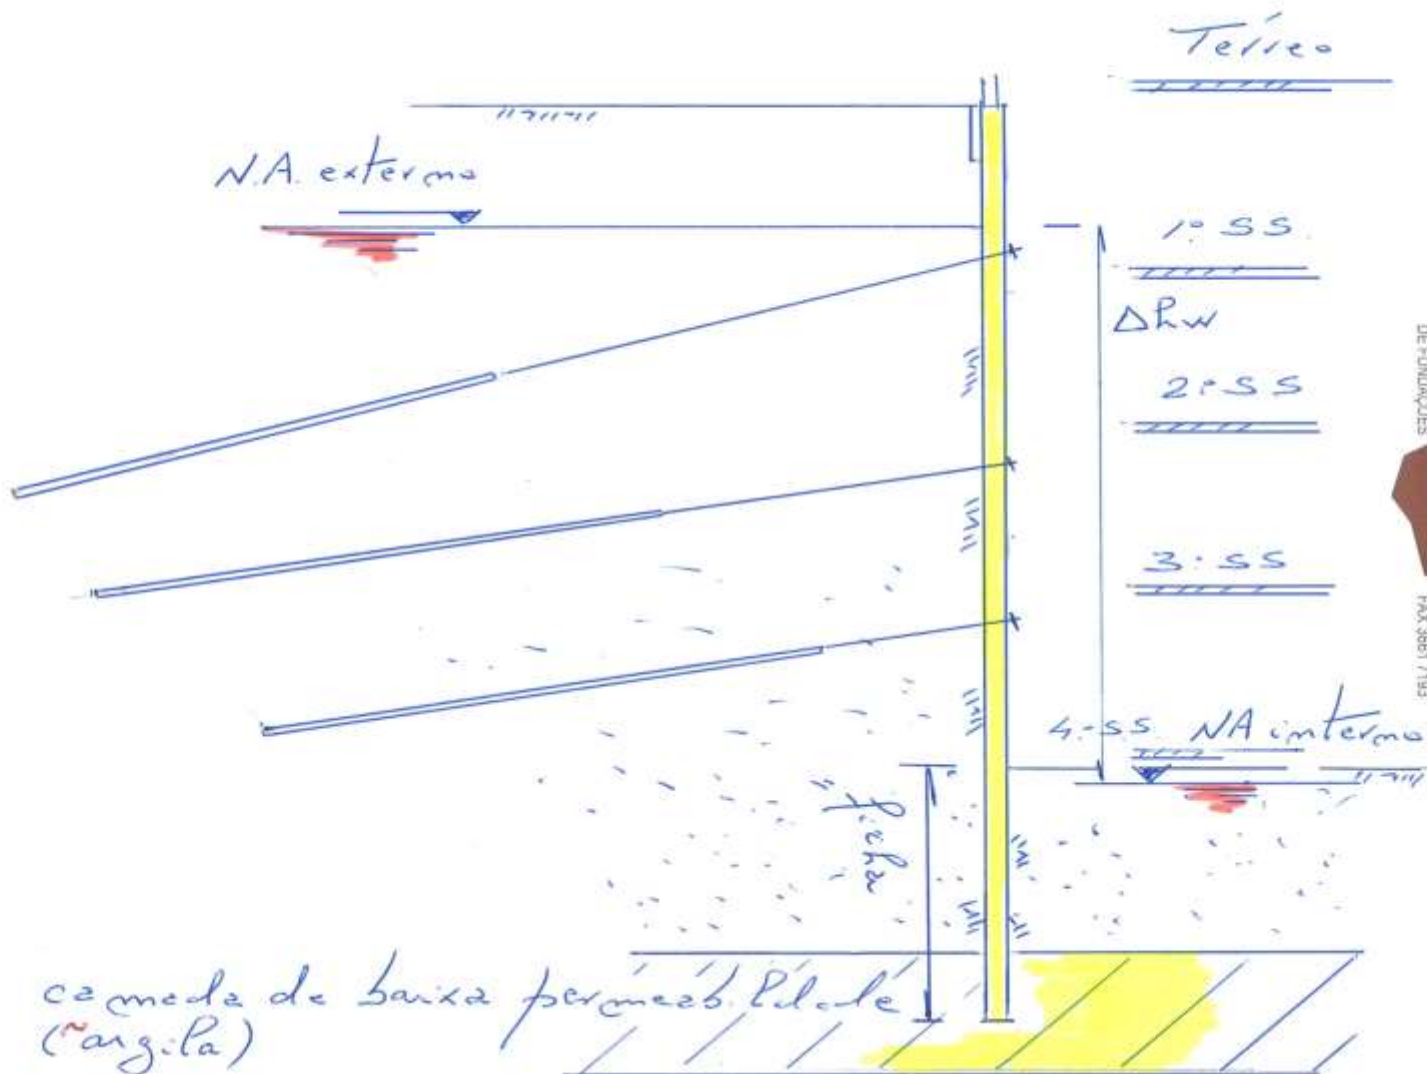 Térreo
N.A. externo
1º SS.
Δhw
2º SS
3º SS
4º S.S. NA interno
ficha
camada de baixa permeabilidade
(~argila)
DE FUNDAÇÕES
FAX 3661 7193